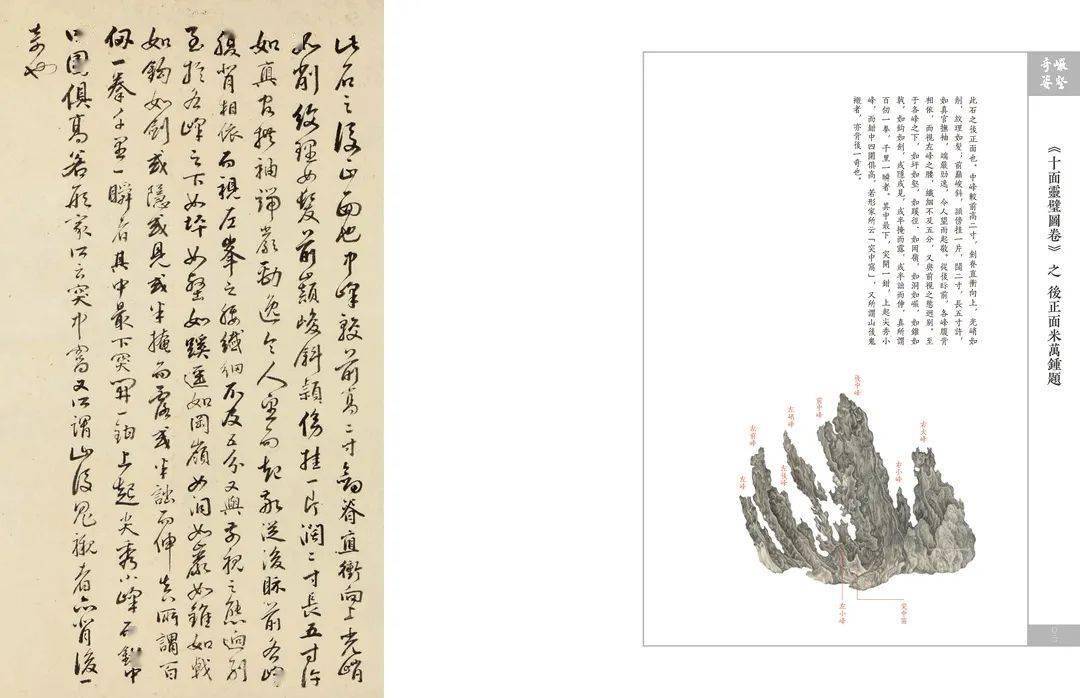 巖壑
奇姿
《十面靈璧圖卷》之 後正面米萬鍾題
此石之後正面也。中峰較前高二寸，劍脊直衝向上，光峭如
削，紋理如髮；前巔峻斜，頴傍挂一片，闊二寸，長五寸許，
如真官撫袖，端嚴勁逸，令人望而起敬。從後眎前，各峰腹背
相依，而視左峰之腰，纖細不及五分，又與前視之態迥別。至
于各峰之下，如坪如壑，如蹊徑，如岡嶺，如洞如巖，如錐如
戟，如鉤如劍，或隱或見，或半掩而露，或半詘而伸，真所謂
百仞一拳，千里一瞬者。其中最下，突開一鉗，上起尖秀小
峰，而鉗中四圍俱高，若形家所云「突中窩」，又所謂山後鬼
襯者，亦背後一奇也。
右大峰
右小峰
後中峰
前中峰
左峭峰
左後峰
左前峰
左峰
突中窩
左小峰
此石之後正面也中峰較前高二寸劍脊直衝向上光峭
如削紋理如髮前巔峻斜頴傍挂一片闊二寸長五寸許
如真官撫袖端嚴勁逸令人望而起敬從後眎前各峰
腹背相依而視左峯之腰纖細不及五分又與前視之態迥別
至於各峰之下如坪如壑如蹊徑如岡嶺如洞如巖如錐如戟
如鉤如劍或隱或見或半掩而露或半詘而伸真所謂百
仞一拳千里一瞬者其中最下突開一鉗上起尖秀小峰而鉗中
四圍俱高若形家所云突中窩又所謂山後鬼襯者亦背後一
奇也